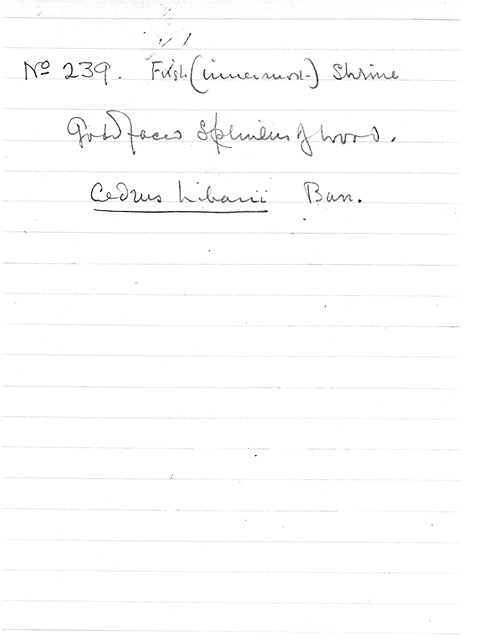 No 239. First (innermost) Shrine
Gold faced Splinters of wood.
Cedrus Libanii Barr.